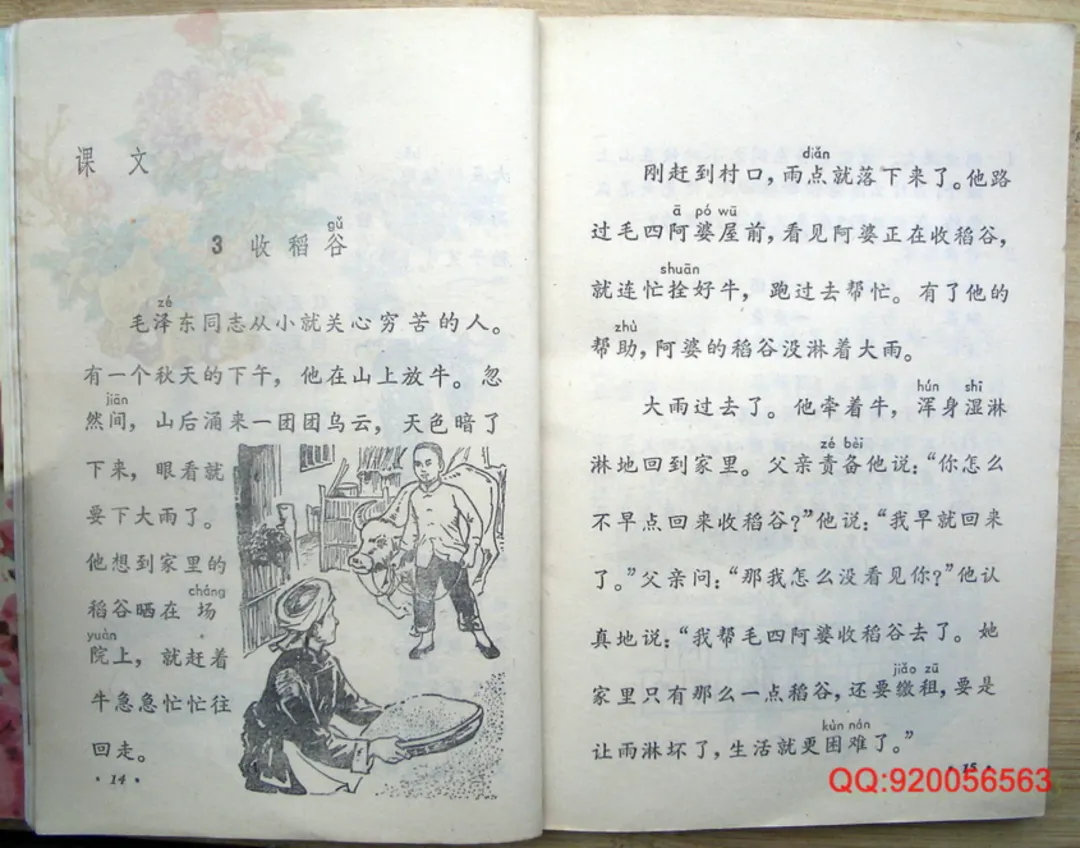 课 文
gǔ
3 收稻谷
zé
毛泽东同志从小就关心穷苦的人。
有一个秋天的下午，他在山上放牛。忽
jiān
然间，山后涌来一团团乌云，天色暗了
下来，眼看就
要下大雨了。
他想到家里的
cháng
稻谷晒在场
yuàn
院上，就赶着
牛急急忙忙往
回走。
·14·
diǎn
刚赶到村口，雨点就落下来了。他路
ā pó wū
过毛四阿婆屋前，看见阿婆正在收稻谷，
shuān
就连忙拴好牛，跑过去帮忙。有了他的
zhù
帮助，阿婆的稻谷没淋着大雨。
hún shī
大雨过去了。他牵着牛，浑身湿淋
zé bèi
淋地回到家里。父亲责备他说：“你怎么
不早点回来收稻谷？”他说：“我早就回来
了。”父亲问：“那我怎么没看见你？”他认
真地说：“我帮毛四阿婆收稻谷去了。她
jiǎo zū
家里只有那么一点稻谷，还要缴租，要是
kùn nán
让雨淋坏了，生活就更困难了。”
·15·
QQ:920056563